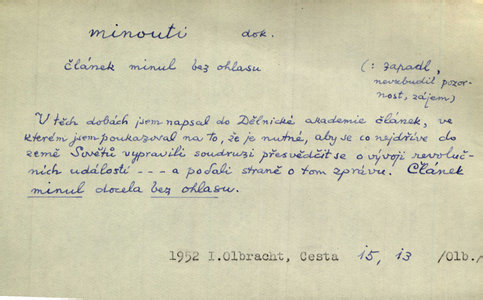 minouti dok.
článek minul bez ohlasu
(: zapadl,
nevzbudil pozor-
nost, zájem)
V těch dobách jsem napsal do Dělnické akademie článek, ve
kterém jsem poukazoval na to, že je nutné, aby se co nejdříve do
země Sovětů vypravili soudruzi přesvědčit se o vývoji revoluč-
ních událostí --- a podali straně o tom zprávu. Článek
minul docela bez ohlasu.
1952 I.Olbracht, Cesta 15, 13 /Olb./